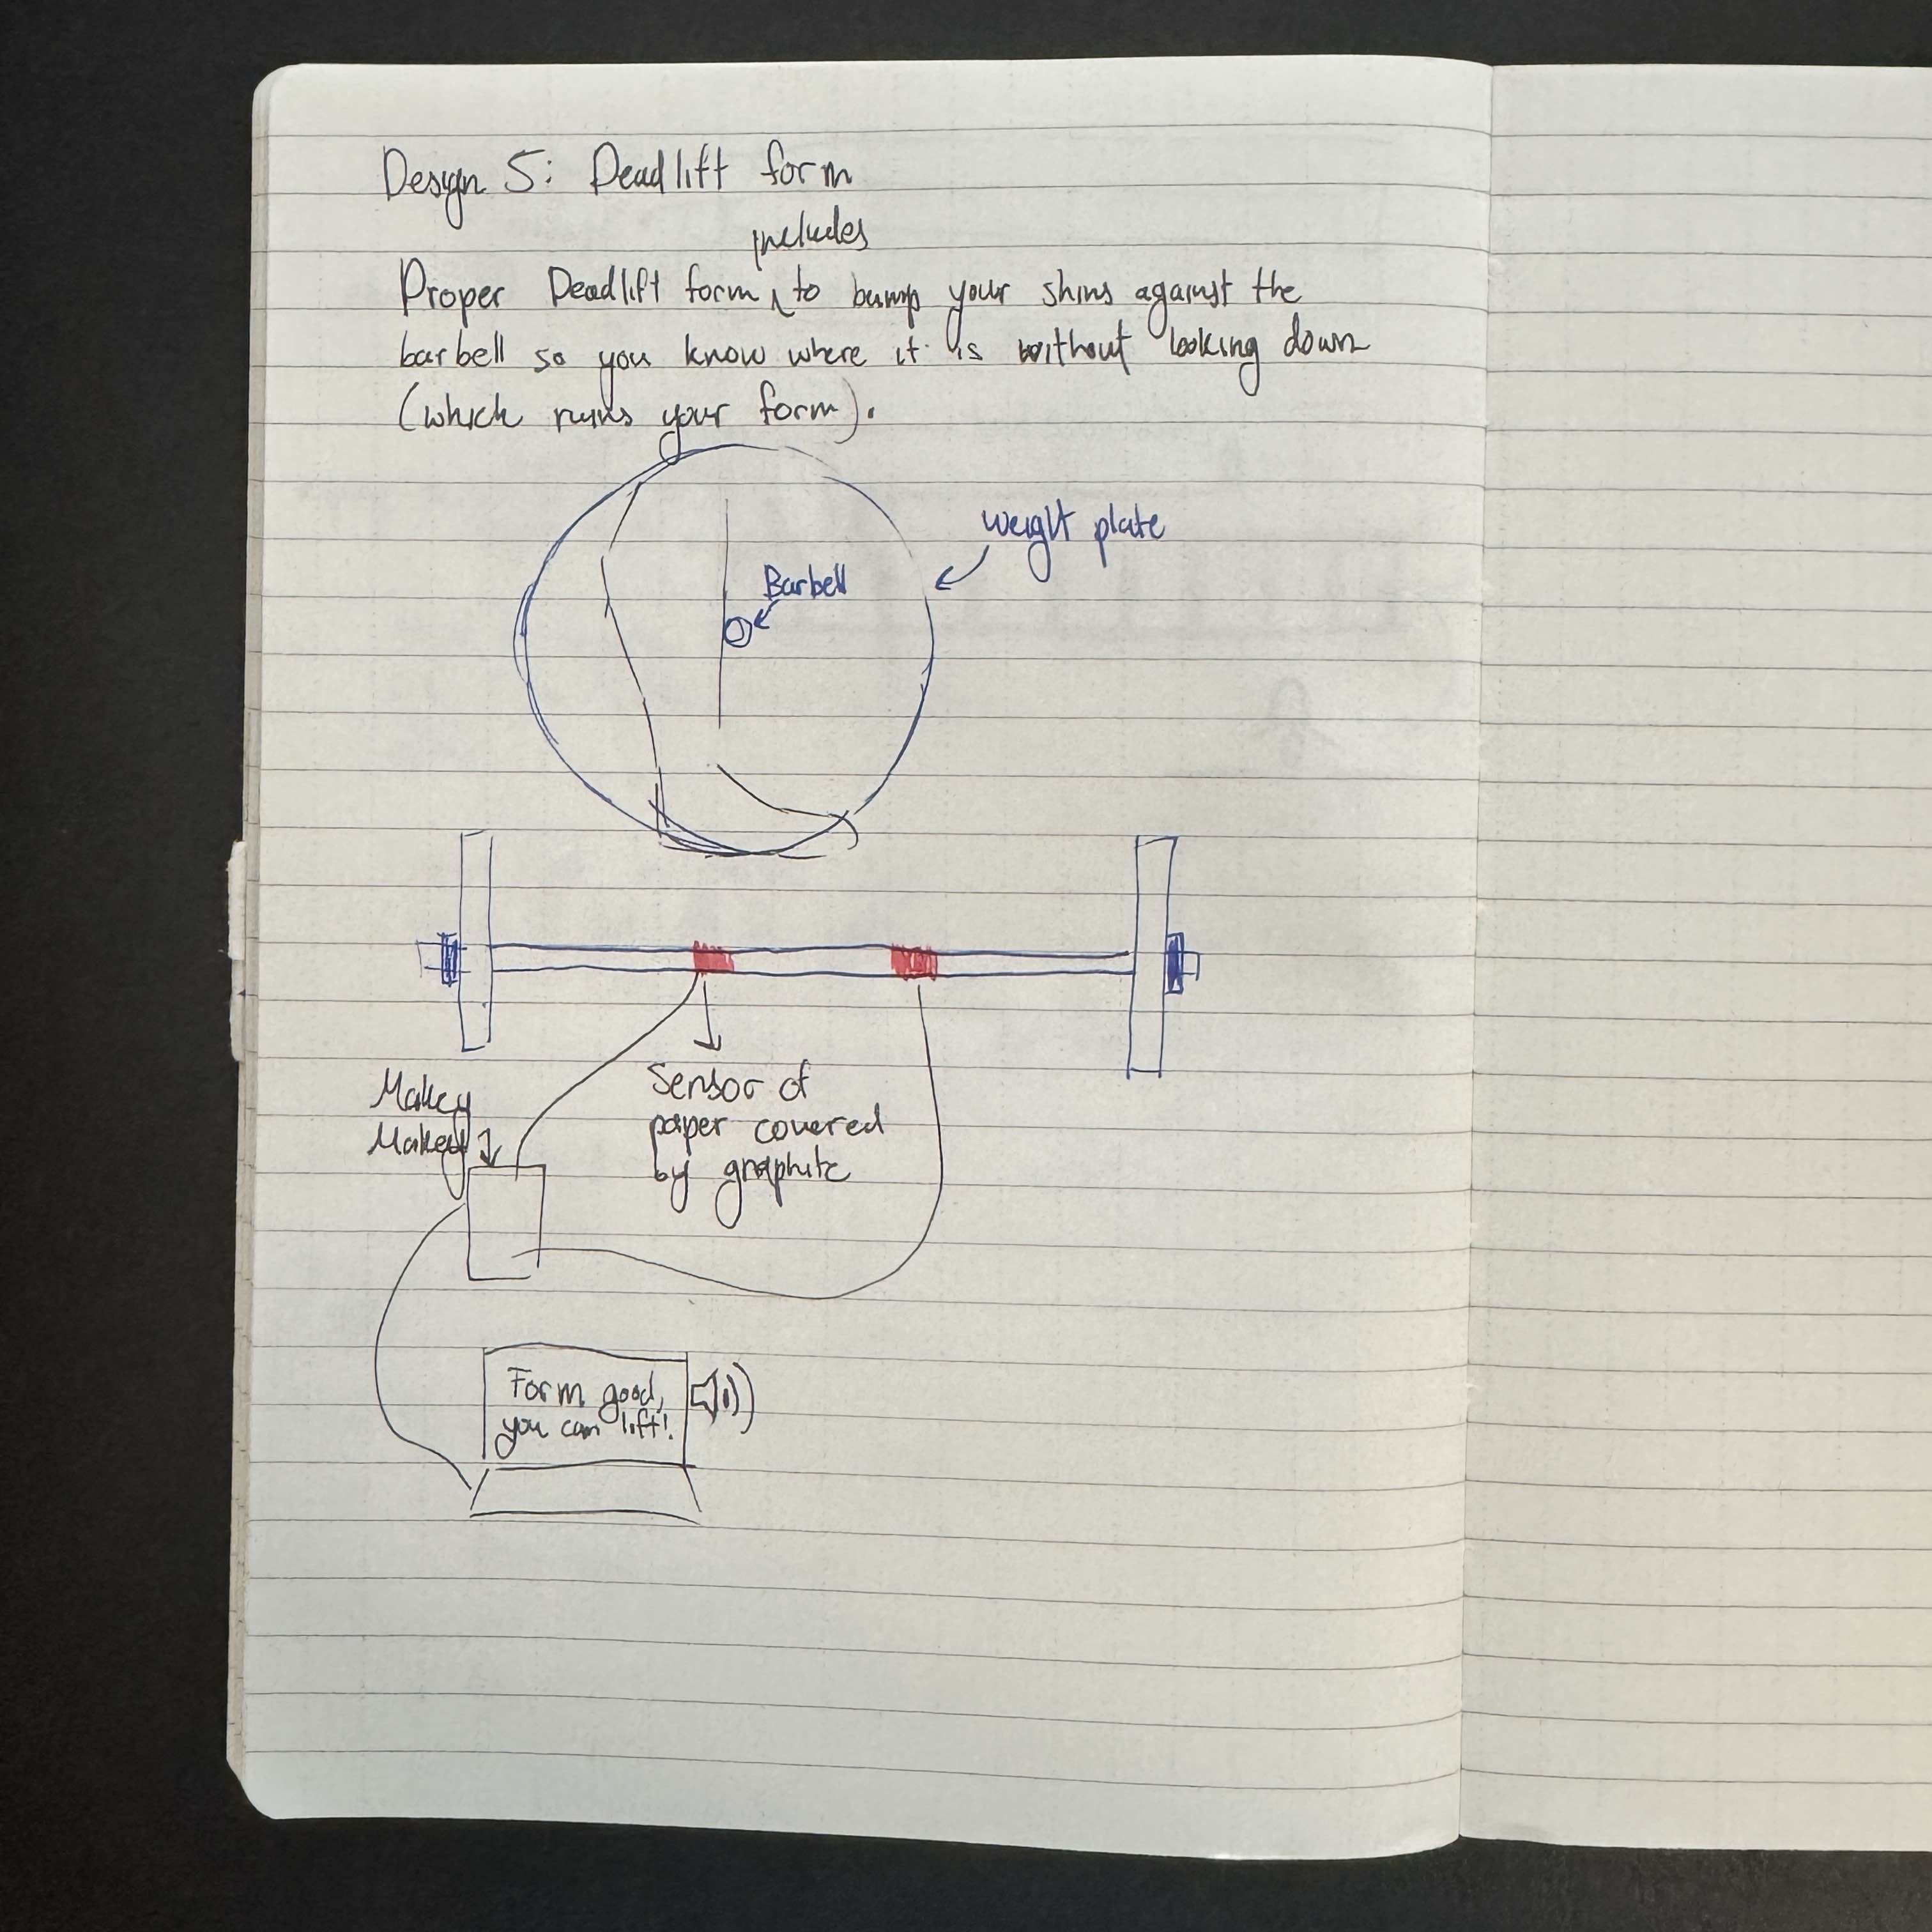 Design 5: Deadlift form
includes
Proper Deadlift form ^ to bump your shins against the
barbell so you know where it is without looking down
(which ruins your form).
weight plate
Barbell
Makey
Makey
Sensor of
paper covered
by graphite
Form good,
you can lift!